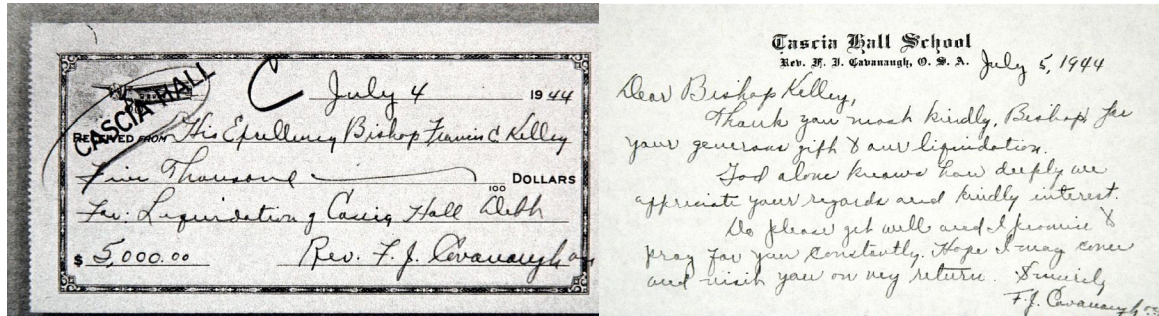 CASCIA HALL
C
July 4 1944
RECEIVED FROM His Excellency Bishop Francis C Kelley
Five Thousand 100 DOLLARS
For: Liquidation of Cascia Hall Debt
$ 5,000.00 Rev. F. J. Cavanaugh
Cascia Hall School
Rev. F. J. Cavanaugh, O. S. A.
July 5, 1944
Dear Bishop Kelley,
Thank you most kindly, Bishop for
your generous gift & our liquidation.
God alone knows how deeply we
appreciate your regards and kindly interest.
Do please get well and I promise to
pray for you constantly. Hope I may come
and visit you on my return. Sincerely
F.J. Cavanaugh